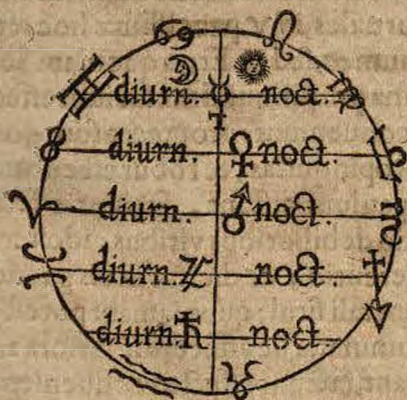 diurn. ☿ noct.
diurn. ♀ noct.
diurn. ♂ noct.
diurn. ♃ noct.
diurn ♄ noct.